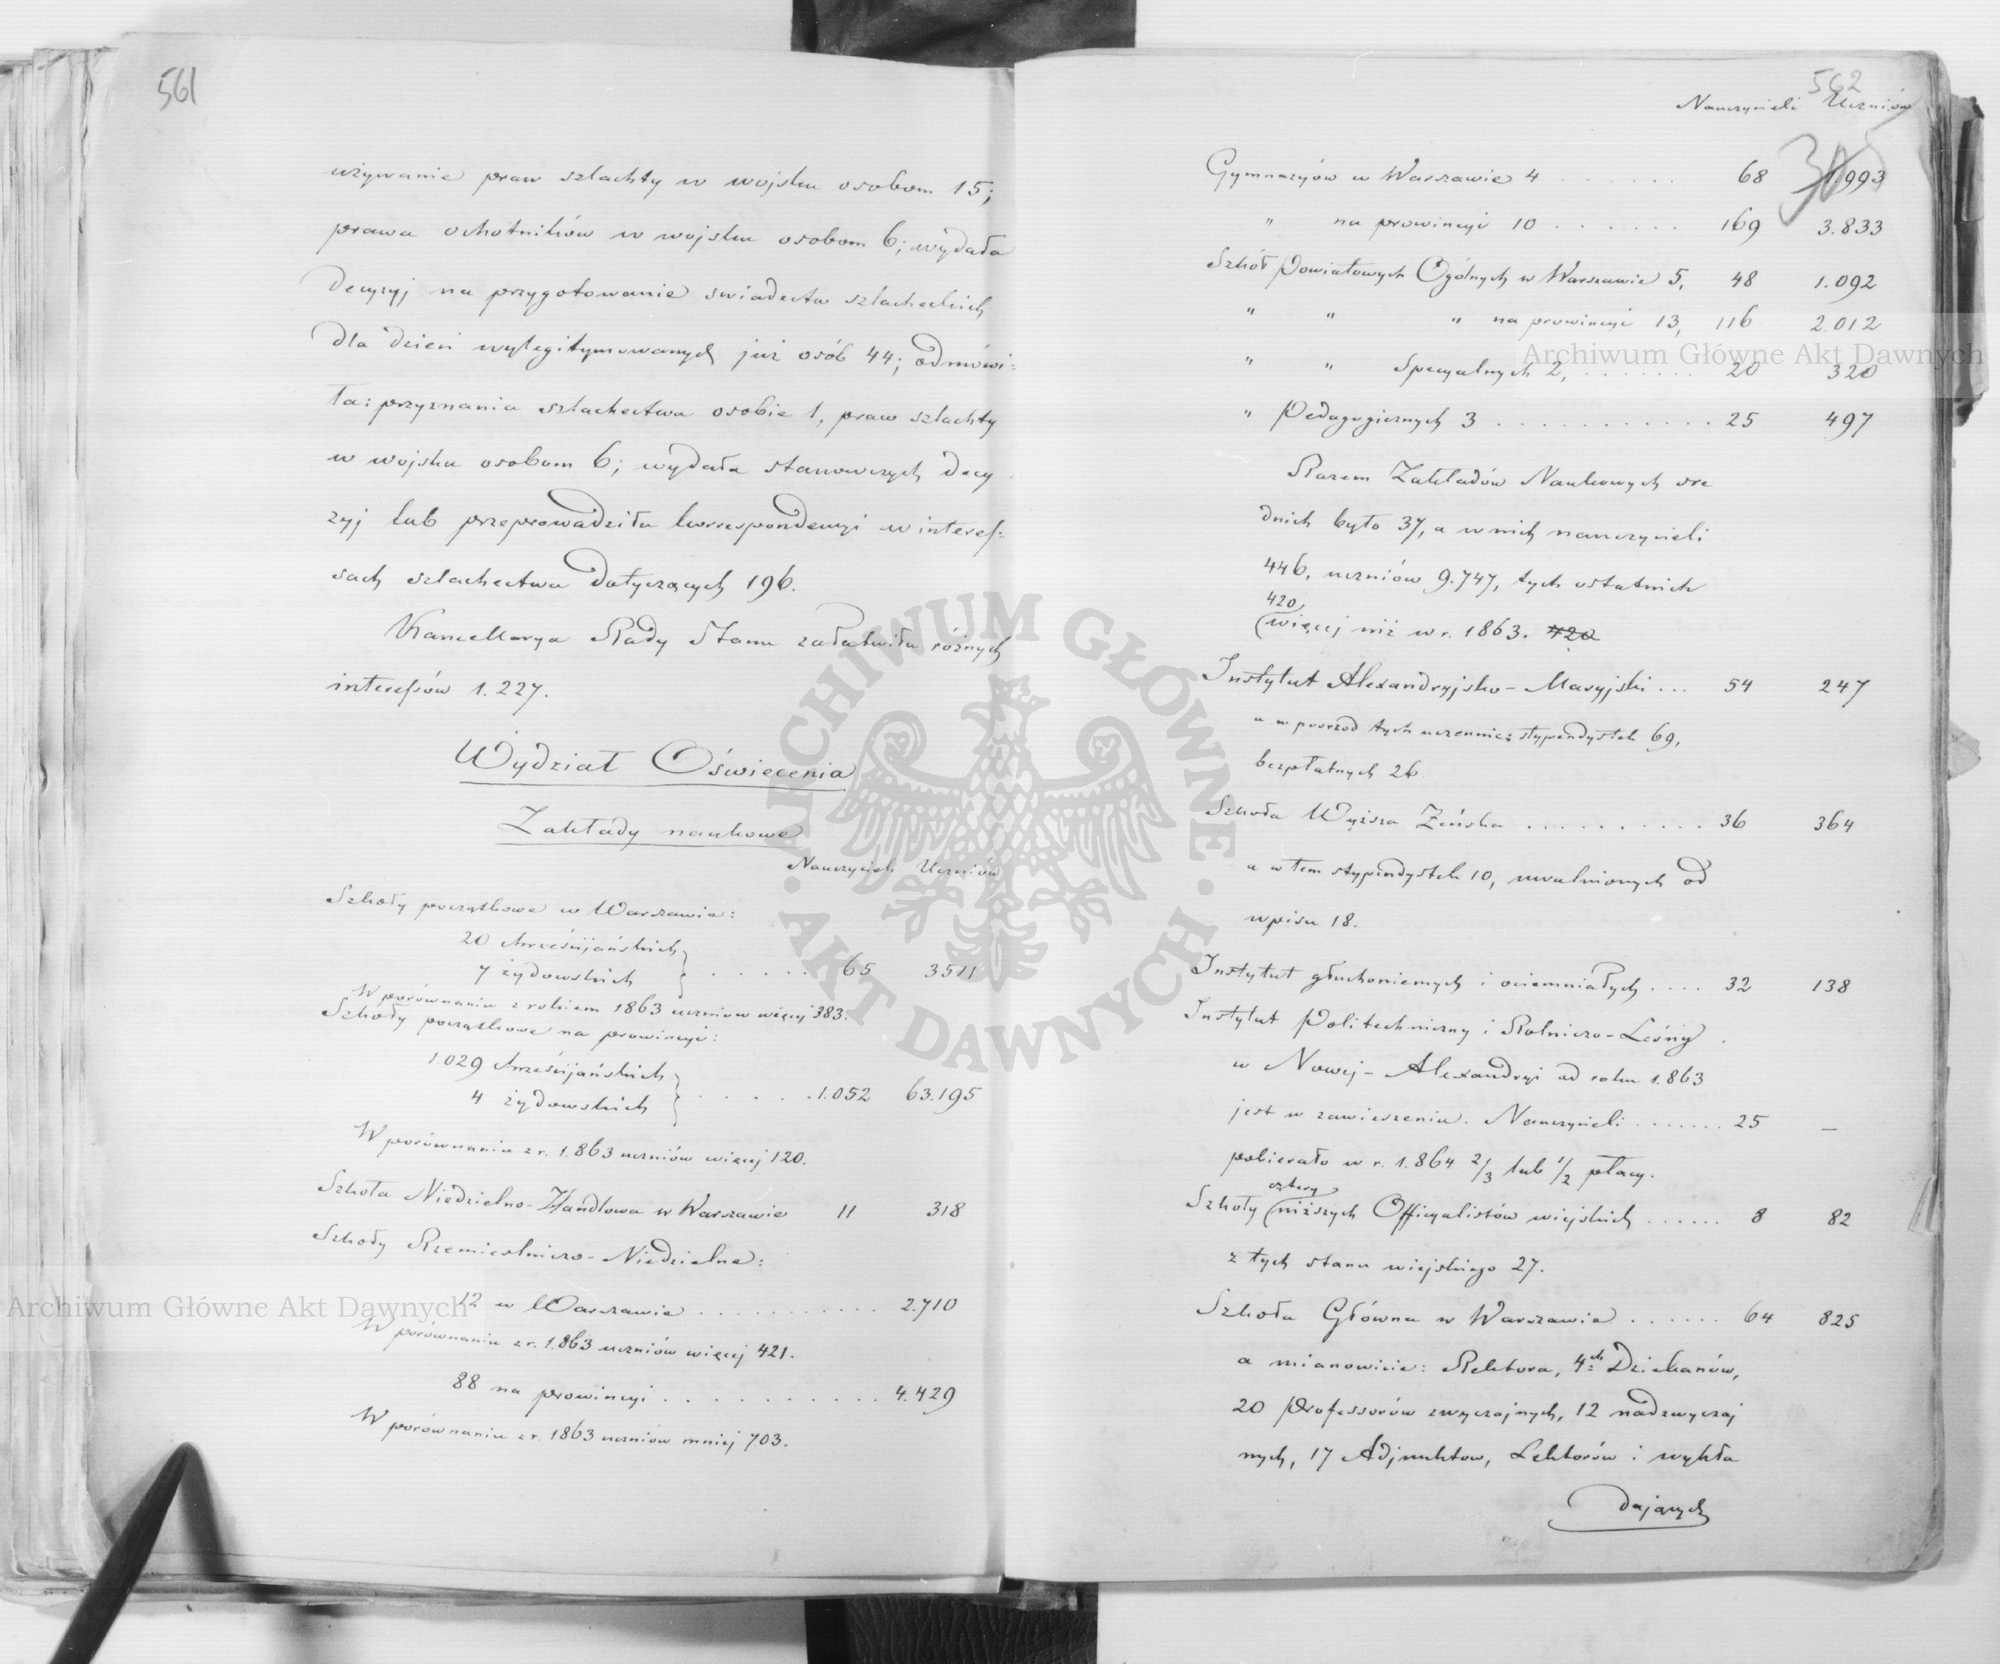 561
używanie praw szlachty w wojsku osobom 15;
prawa ochotników w wojsku osobom 6; wydała
decyzyj na przygotowanie swiadectw szlacheckich
dla dzieci wylegitymowanych już osób 44; odmówi-
ła: przyznania szlachectwa osobie 1, praw szlachty
w wojsku osobom 6; wydała stanowczych decy
zyj lub przeprowadziła korrespondencyi w interes-
sach szlachectwa dotyczących 196.
Kancellarya Rady Stanu załatwiła różnych
interessów 1.227.
Wydział Oświecenia
Zakłady naukowe
Nauczycieli Uczniów
Szkoły początkowe w Warszawie:
20 chrześcijańskich
7 żydowskich } . . . . . 65 3511
W porównaniu z rokiem 1863 uczniów więcej 383.
Szkoły początkowe na prowincyi:
1.029 chrześcijańskich
4 żydowskich } . . . . . . 1.052 63.195
W porównaniu z r. 1.863 uczniów więcej 120.
Szkoła Niedzielno-Handlowa w Warszawie 11 318
Szkoły Rzemieślniczo-Niedzielne:
12 w Warszawie . . . . . . . . . . . 2.710
W porównaniu z r. 1.863 uczniów więcej 421.
88 na prowincyi . . . . . . . . . . . 4.429
W porównaniu z r. 1863 uczniów mniej 703.
562
Nauczycieli Uczniów
305
Gymnazyów w Warszawie 4 . . . . . . 68 1.993
" na prowincyi 10 . . . . . . 169 3.833
Szkół Powiatowych Ogólnych w Warszawie 5, 48 1.092
" " " na prowincyi 13, 116 2.012
" " Specyalnych 2, . . . . . . . 20 320
" Pedagogicznych 3 . . . . . . . . . . . 25 497
Razem Zakładów Naukowych sre
dnich było 37, a w nich nauczycieli
446, uczniów 9.747, tych ostatnich
420
(więcej niż w r. 1863. 420
Instytut Alexandryjsko-Maryjski . . . 54 247
a w posrzod tych uczennic: stypendystek 69,
bezpłatnych 26.
Szkoła Wyższa Żeńska . . . . . . . . . . 36 364
a w tem stypendystek 10, uwolnionych od
wpisu 18.
Instytut głuchoniemych i ociemniałych . . . . 32 138
Instytut Politechniczny i Rolniczo-Leśny
w Nowej-Alexandryi od roku 1.863
jest w zawieszeniu. Nauczycieli . . . . . . . 25 —
pobierało w r. 1.864 2/3 lub 1/2 płacy.
cztery
Szkoły (niższych Officyalistów wiejskich . . . . . . 8 82
z tych stanu wiejskiego 27.
Szkoła Główna w Warszawie . . . . . . 64 825
a mianowicie: Rektora, 4ch Dziekanów,
20 Professorów zwyczajnych, 12 nadzwyczaj
nych, 17 Adjunktow, Lektorów i wykła
dających
ARCHIWUM GŁÓWNE AKT DAWNYCH
Archiwum Główne Akt Dawnych
Archiwum Główne Akt Dawnych